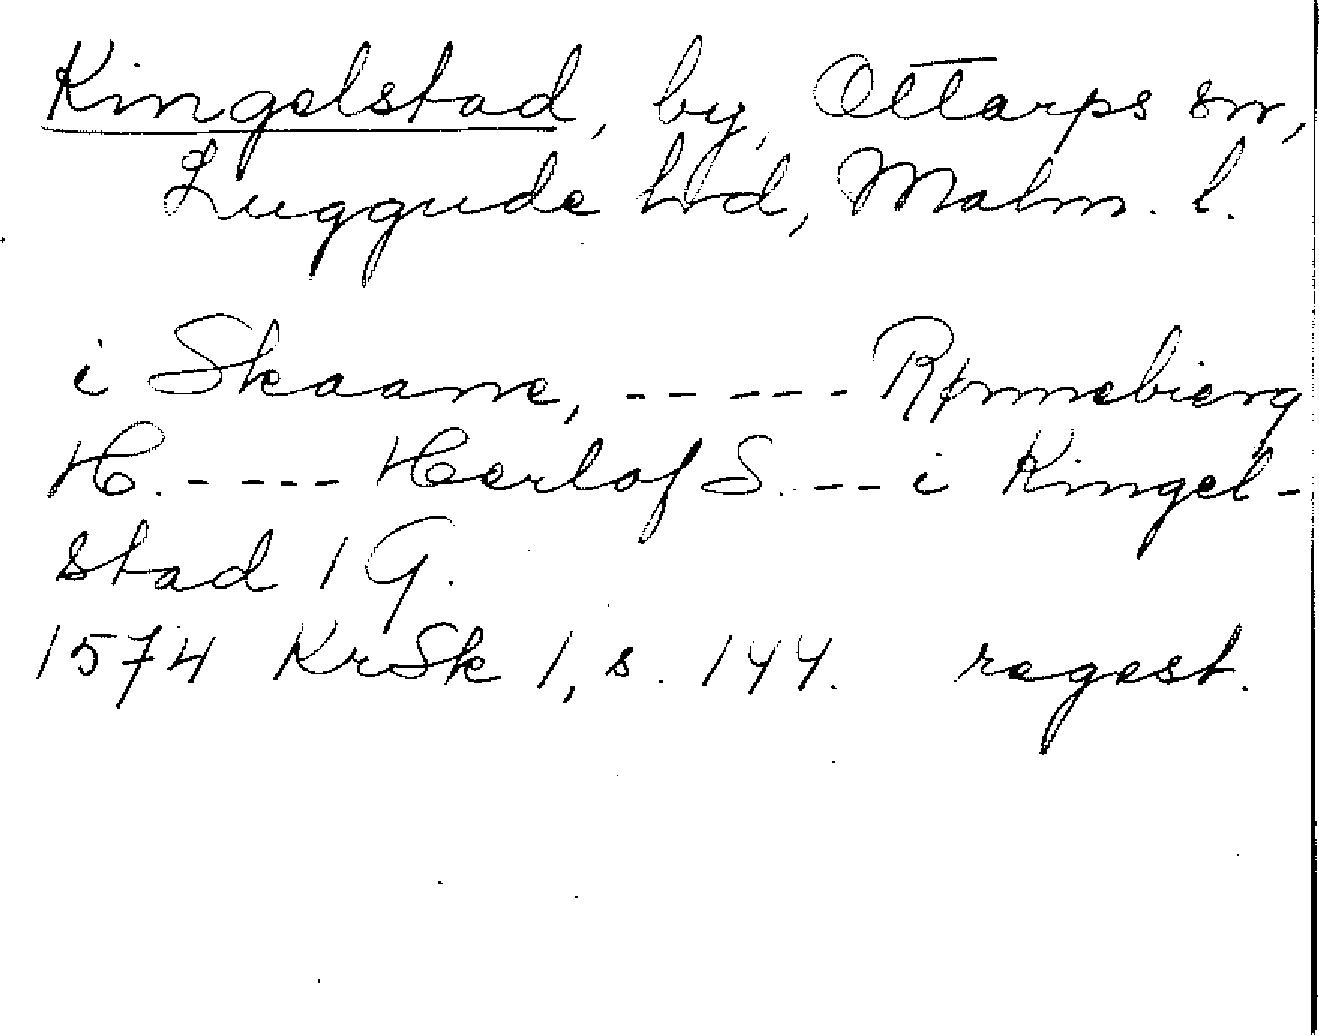 Kingelstad, by, Ottarps sn,
Luggude hd, Malm. l.
i Skaane, ----- Rønnebierg
H. ---- Herlof S. --- i Kingel-
stad 1 G.
1574 KrSk 1, s. 144. regest.